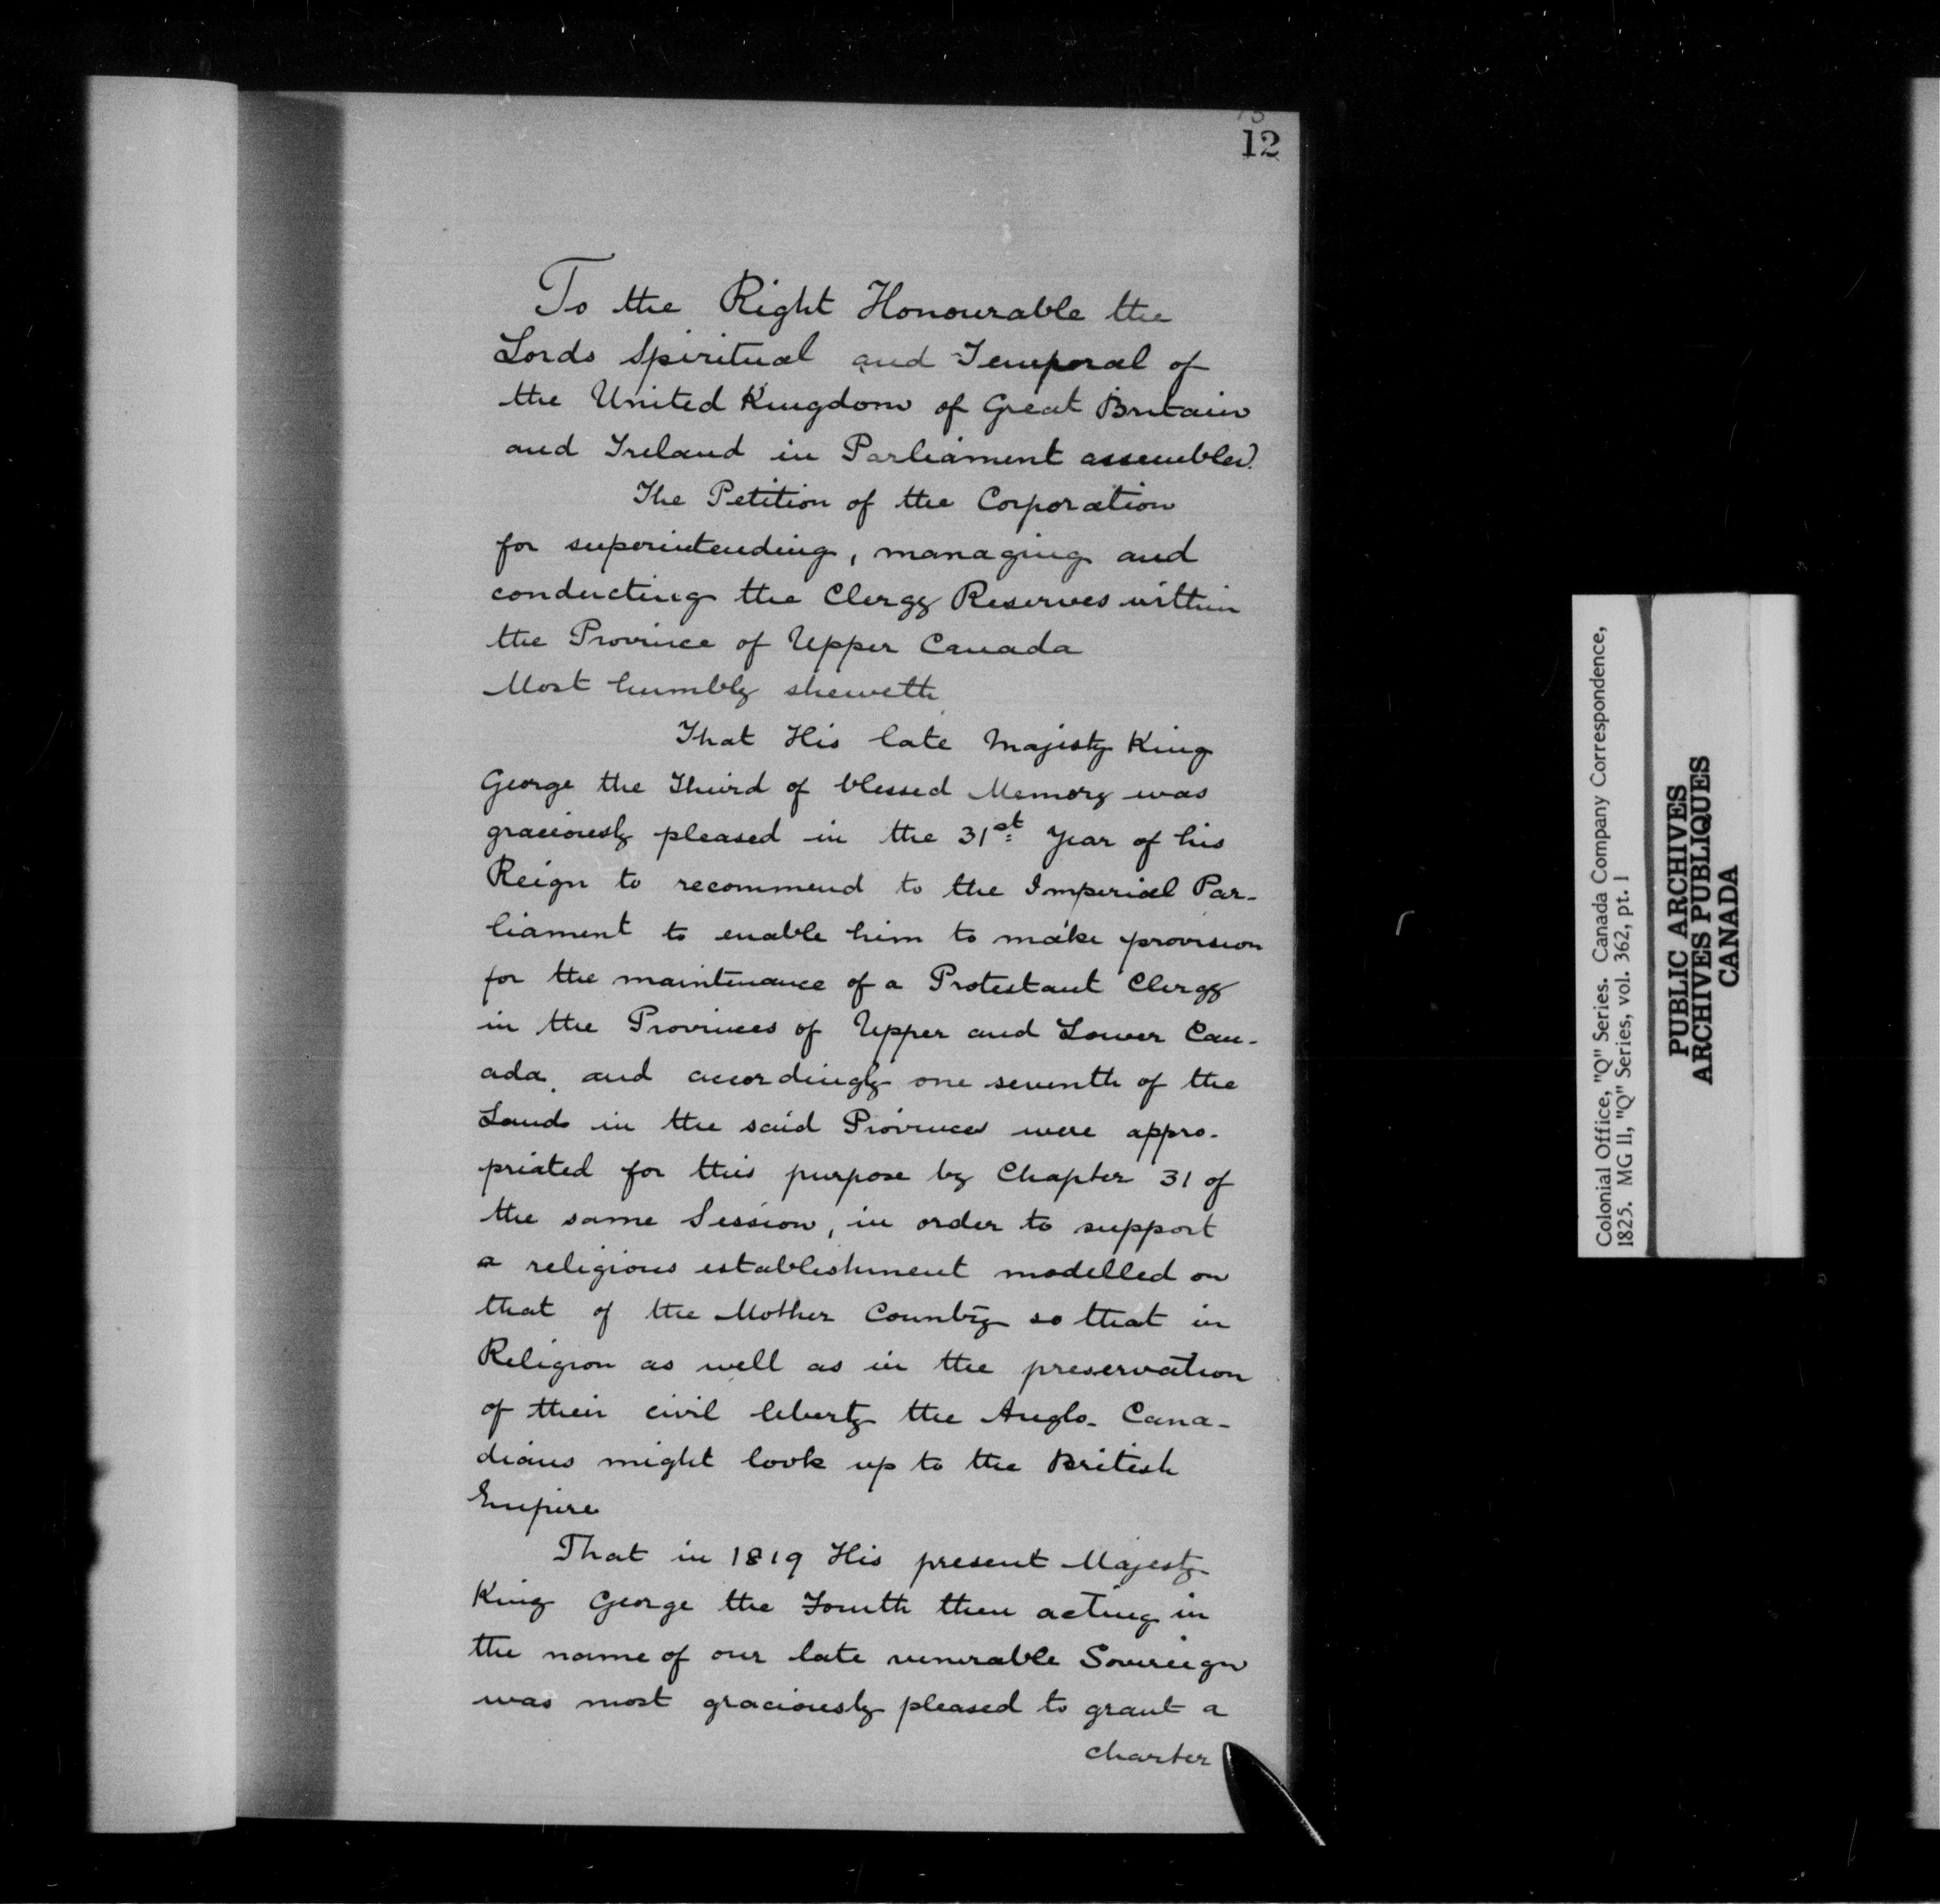 12
To the Right Honourable the
Lords Spiritual and Temporal of
the United Kingdom of Great Britain
and Ireland in Parliament assembled.
The Petition of the Corporation
for superintending, managing and
conducting the Clergy Reserves within
the Province of Upper Canada
Most humbly sheweth
That His late Majesty King
George the Third of blessed Memory was
graciously pleased in the 31st Year of his
Reign to recommend to the Imperial Par-
liament to enable him to make provision
for the maintenance of a Protestant Clergy
in the Provinces of Upper and Lower Can-
ada, and accordingly one seventh of the
Lands in the said Provinces were appro-
priated for this purpose by Chapter 31 of
the same Session, in order to support
a religious establishment modelled on
that of the Mother Country so that in
Religion as well as in the preservation
of their civil liberty the Anglo-Cana-
dians might look up to the British
Empire
That in 1819 His present Majesty
King George the Fourth then acting in
the name of our late venerable Sovereign
was most graciously pleased to grant a
charter
Colonial Office, "Q" Series. Canada Company Correspondence,
1825. MG 11, "Q" Series, vol. 362, pt. 1
PUBLIC ARCHIVES
ARCHIVES PUBLIQUES
CANADA